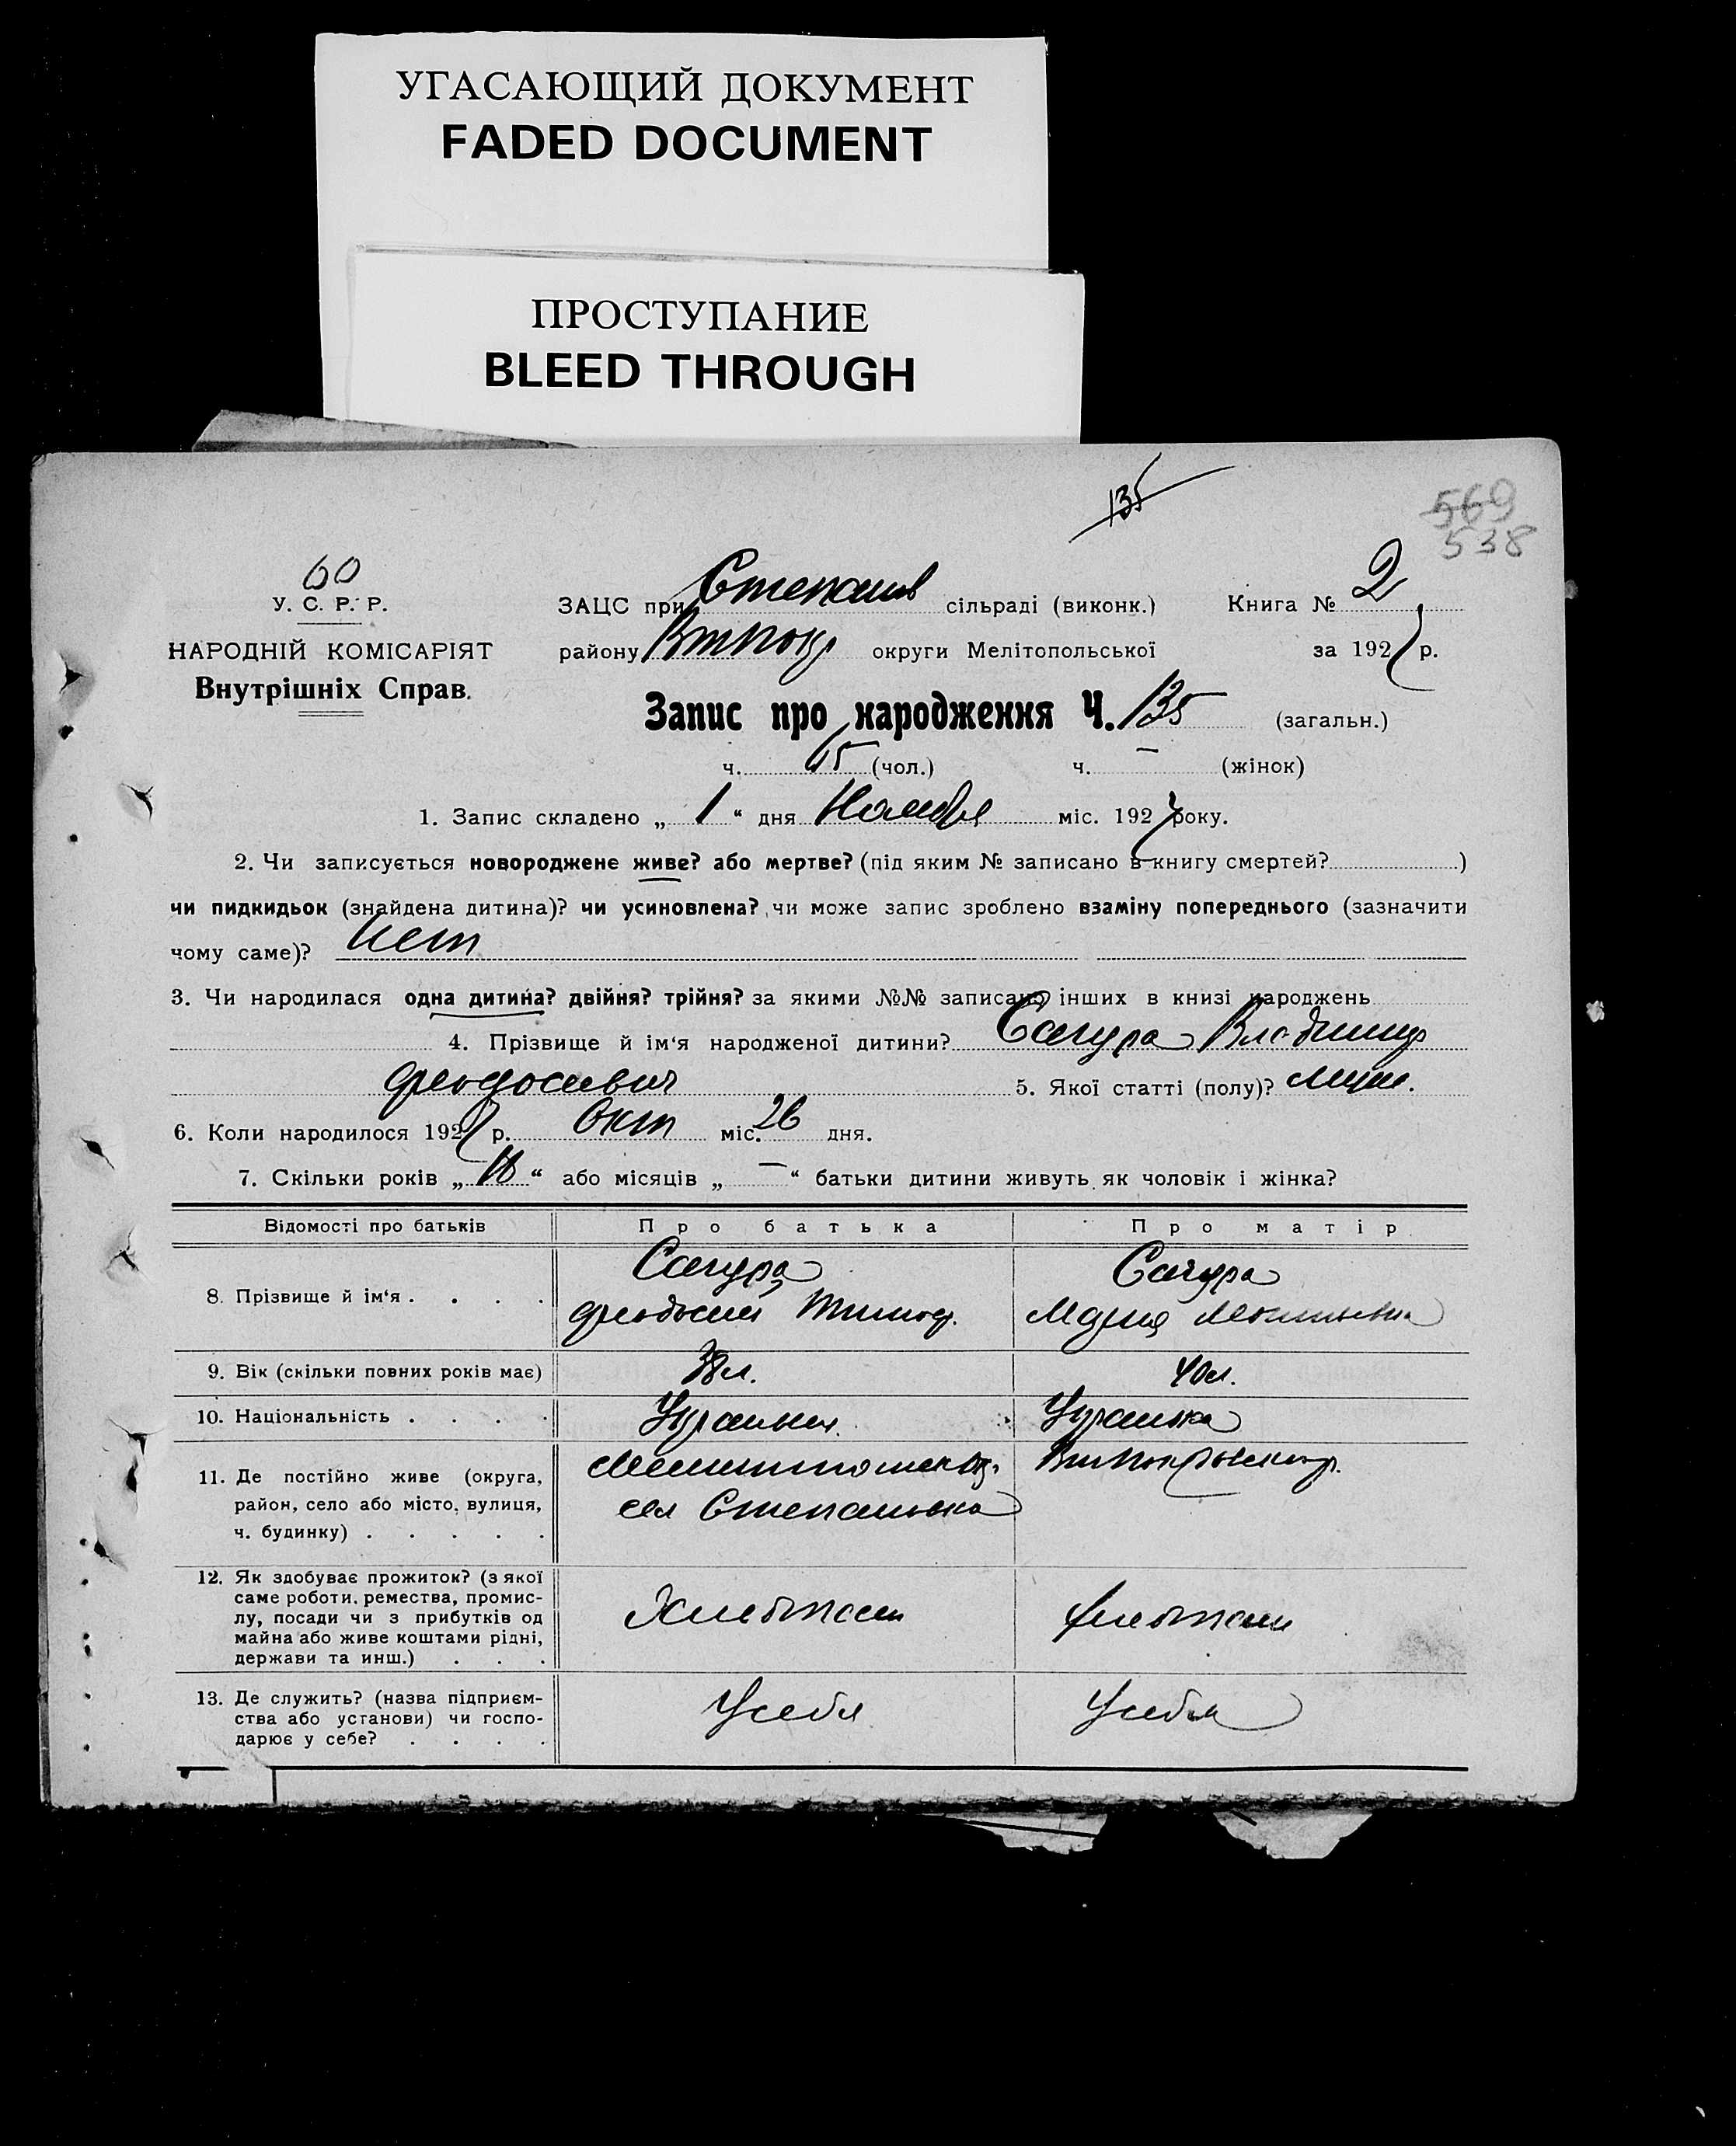 УГАСАЮЩИЙ ДОКУМЕНТ
FADED DOCUMENT
ПРОСТУПАНИЕ
BLEED THROUGH
135
569
538
60
У. С. Р. Р.
НАРОДНІЙ КОМІСАРІЯТ
Внутрішніх Справ.
ЗАЦС при Степанів сільраді (виконк.) Книга № 2
району Втпокр округи Мелітопольської за 1927 р.
Запис про народження Ч. 135 (загальн.)
ч. 65 (чол.) ч. — (жінок)
1. Запис складено „ 1 “ дня Ноября міс. 1927 року.
2. Чи записується новороджене живе? або мертве? (під яким № записано в книгу смертей? )
чи пидкидьок (знайдена дитина)? чи усиновлена? чи може запис зроблено взаміну попереднього (зазначити
чому саме)? нет
3. Чи народилася одна дитина? двійня? трійня? за якими №№ записано інших в книзі народжень
4. Прізвище й ім‘я народженої дитини? Сагура Владимир
Феодосиевич 5. Якої статті (полу)? муж.
6. Коли народилося 1927 р. Окт міс. 26 дня.
7. Скільки років „ “ або місяців „ — “ батьки дитини живуть як чоловік і жінка?
Відомості про батьків Про батька Про матір
8. Прізвище й ім‘я . . . . Сагура Сагура
Феодосий Тимоф. Мария
9. Вік (скільки повних років має) 38 л. 40 л.
10. Національність . . . . Украинец Украинка
11. Де постійно живе (округа,
район, село або місто, вулиця,
ч. будинку) . . . . .
Мелитопольск окр. Втпокровск р.
сел Степановка
12. Як здобуває прожиток? (з якої
саме роботи, ремества, промис-
лу, посади чи з прибутків од
майна або живе коштами рідні,
держави та инш.) . . .
Хлебопаш хлебопаш
13. Де служить? (назва підприєм-
ства або установи) чи госпо-
дарює у себе? . . . .
У себя У себя